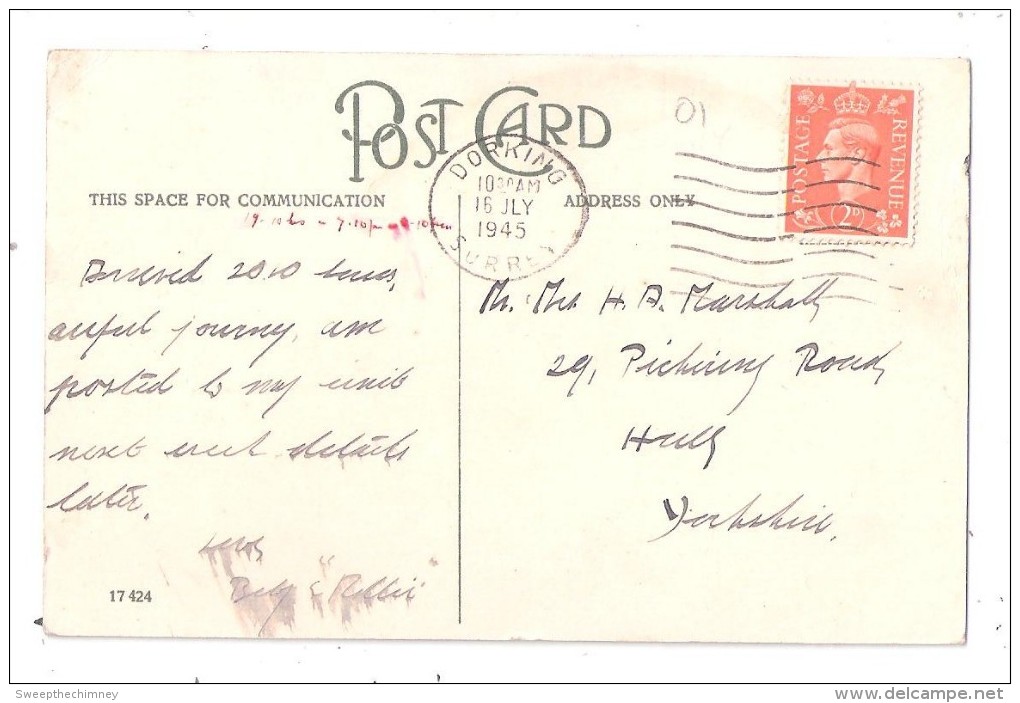 POST CARD
THIS SPACE FOR COMMUNICATION
ADDRESS ONLY
DORKING
1030AM
16 JLY
1945
SURREY
POSTAGE
REVENUE
2D
01
Arrived 20.10 hours,
awful journey, am
posted to my unit
next week details
later.
Love
Bet & "Robbie"
Mr. Mrs H. A. Marshall,
29, Pickering Road,
Hull,
Yorkshire.
17 424
Sweepthechimney
www.delcampe.net